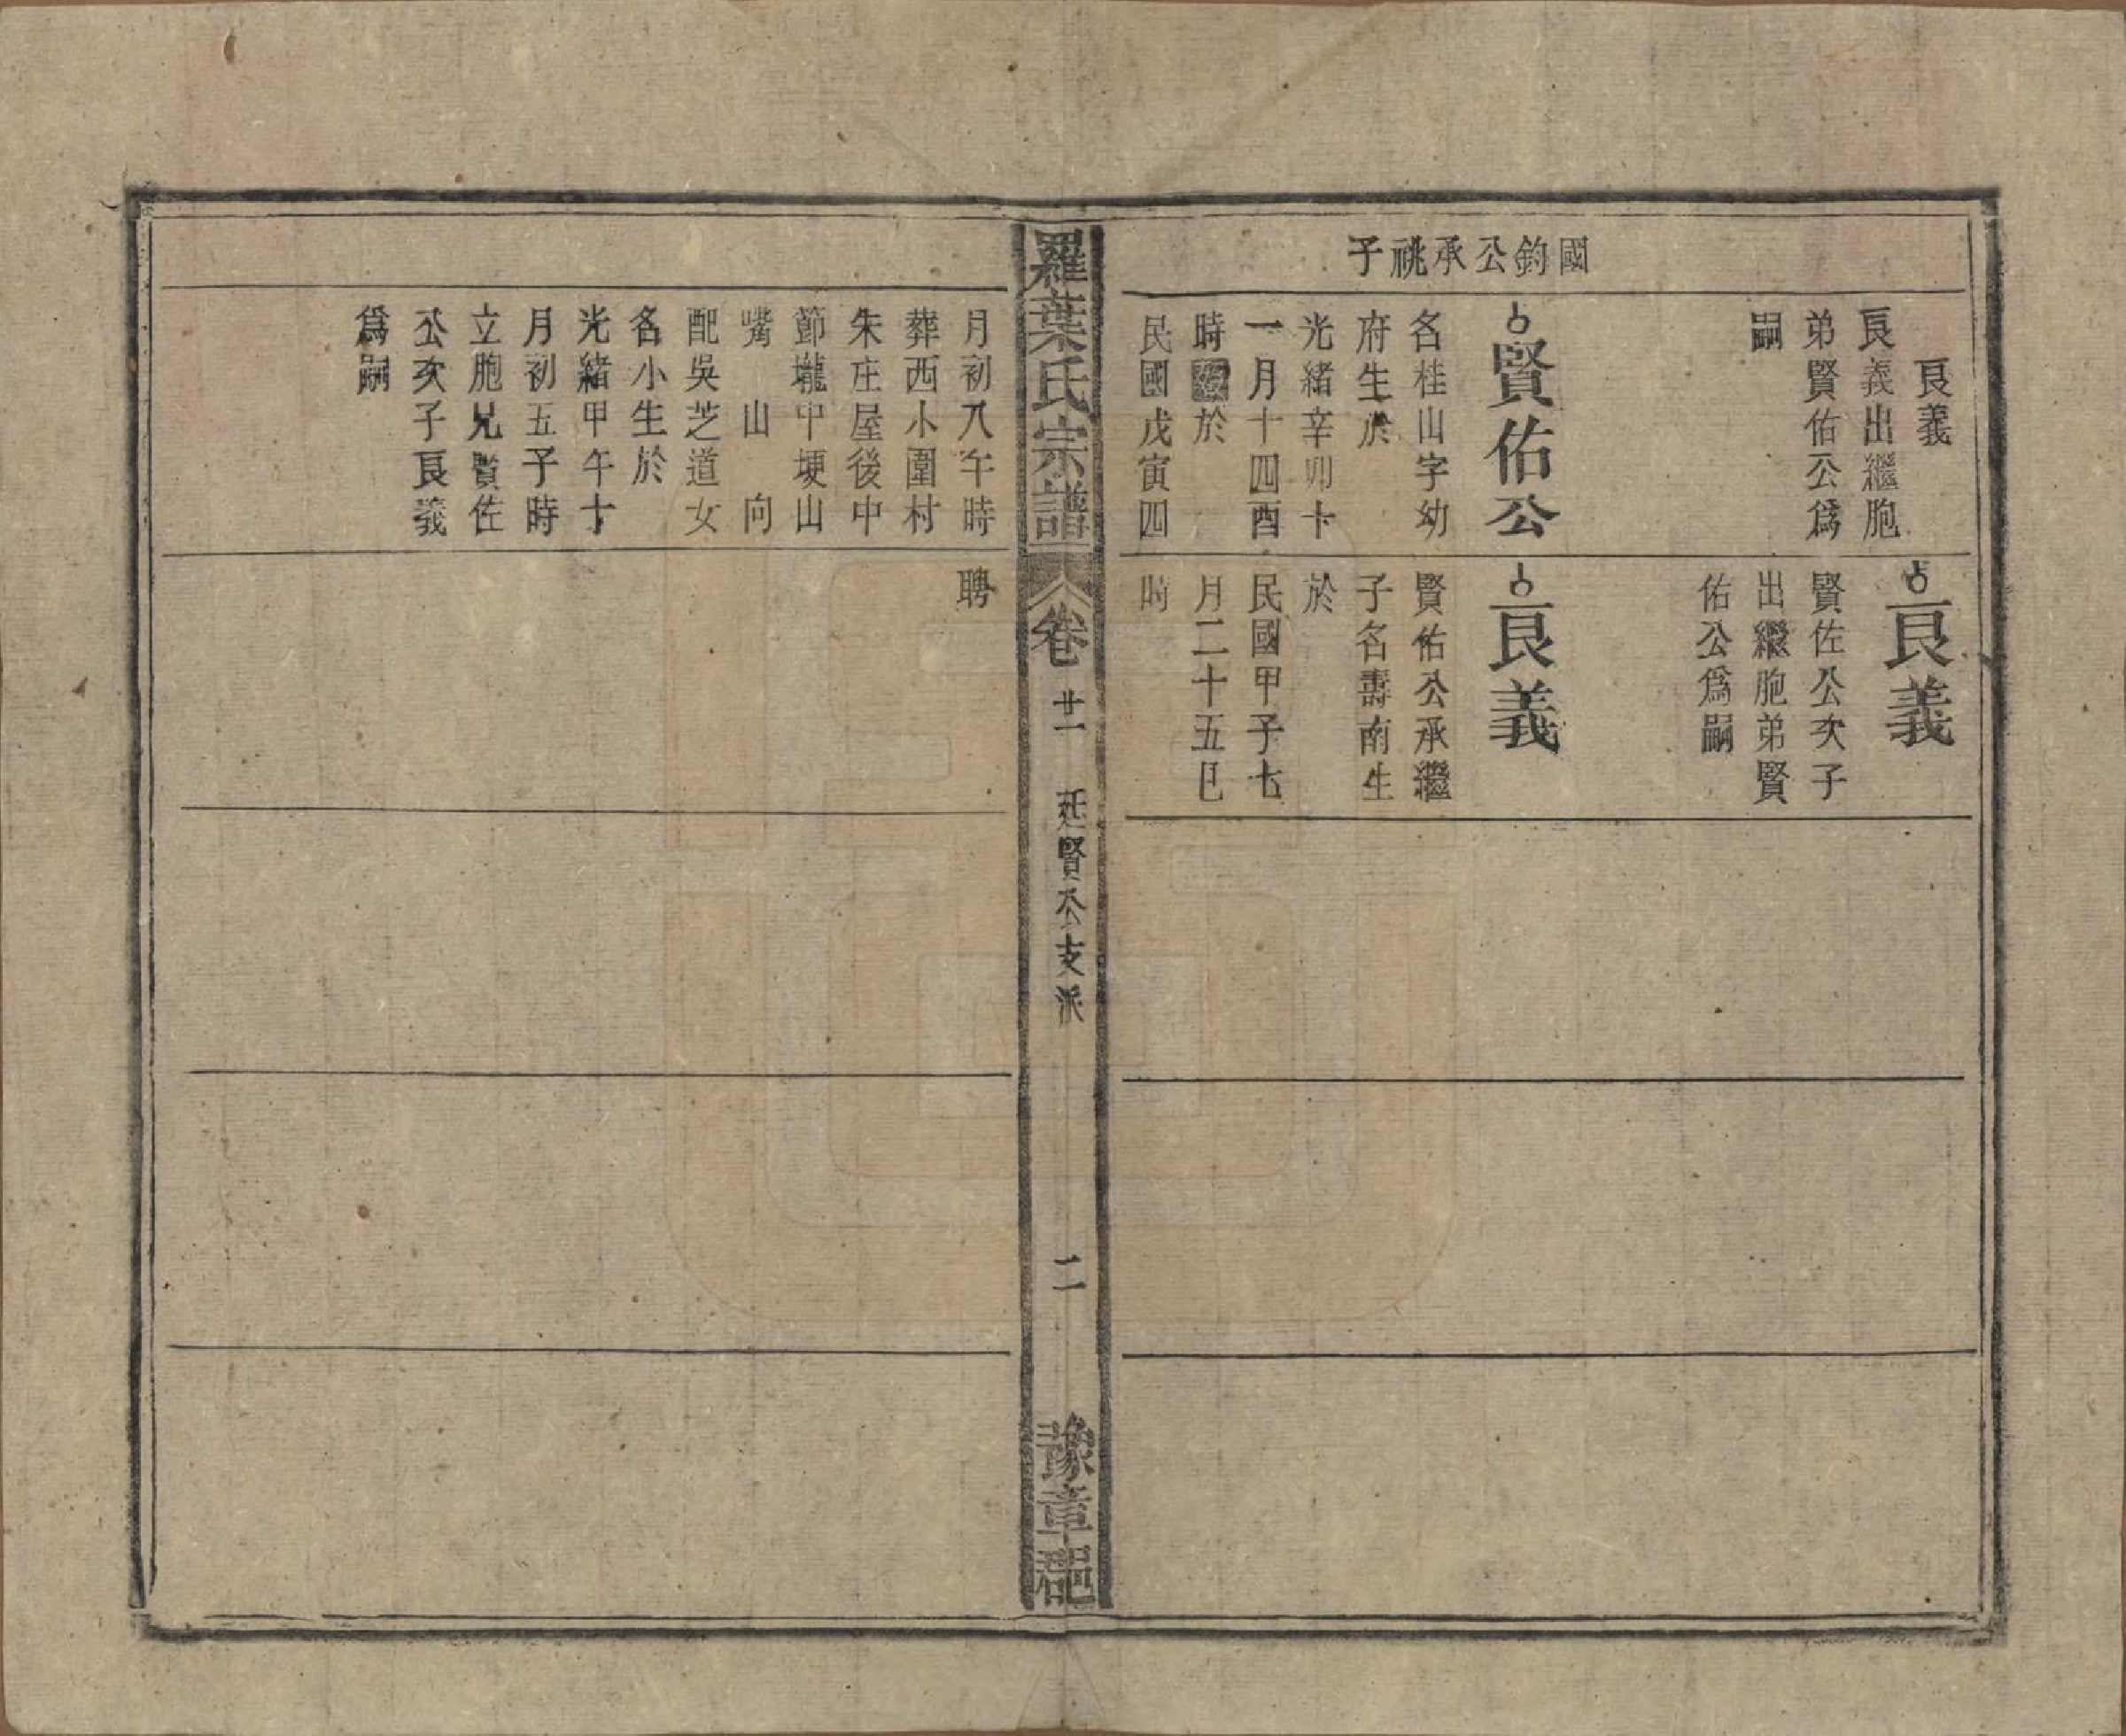 國鈞公承祧子
良義
良義出繼胞
弟賢佑公爲
嗣
賢佑公
名桂山字幼
府生於
光緒辛卯十
一月十四酉
時歿於
民國戊寅四
良義
賢佐公次子
出繼胞弟賢
佑公爲嗣
良義
賢佑公承繼
子名壽南生
於
民國甲子七
月二十五巳
時
羅葉氏宗譜
卷廿一
廷賢公支派
二
豫章郡
月初八午時
葬西小圍村
朱庄屋後中
節壠中埂山
嘴山向
配吳芝道女
名小生於
光緒甲午十
月初五子時
立胞兄賢佐
公次子良義
爲嗣
聘